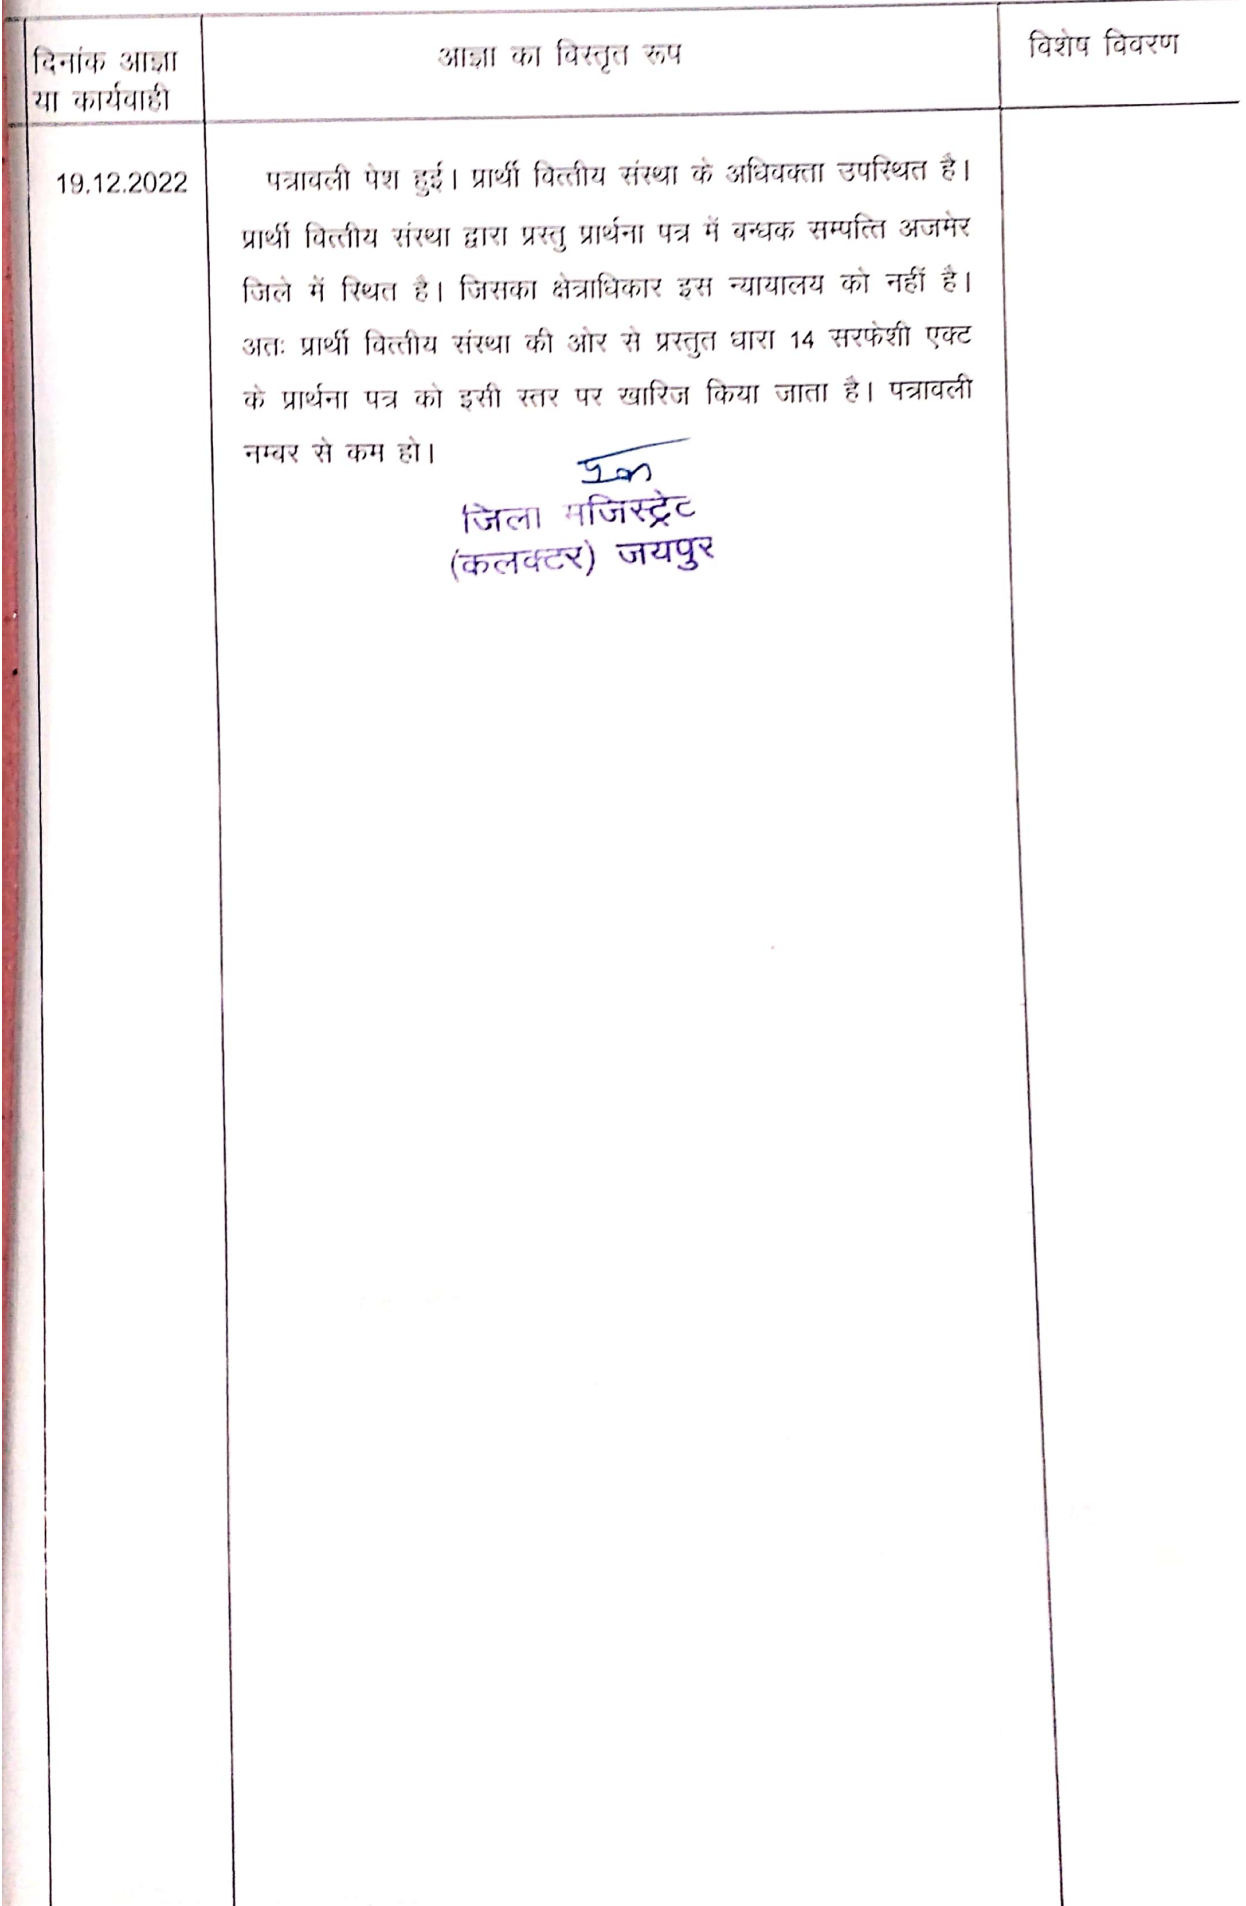 दिनांक आज्ञा
या कार्यवाही
आज्ञा का विस्तृत रूप
विशेष विवरण
19.12.2022
पत्रावली पेश हुई। प्रार्थी वित्तीय संस्था के अधिवक्ता उपस्थित है।
प्रार्थी वित्तीय संस्था द्वारा प्रस्तु प्रार्थना पत्र में बन्धक सम्पत्ति अजमेर
जिले में स्थित है। जिसका क्षेत्राधिकार इस न्यायालय को नहीं है।
अतः प्रार्थी वित्तीय संस्था की ओर से प्रस्तुत धारा 14 सरफेशी एक्ट
के प्रार्थना पत्र को इसी स्तर पर खारिज किया जाता है। पत्रावली
नम्बर से कम हो।
जिला मजिस्ट्रेट
(कलक्टर) जयपुर